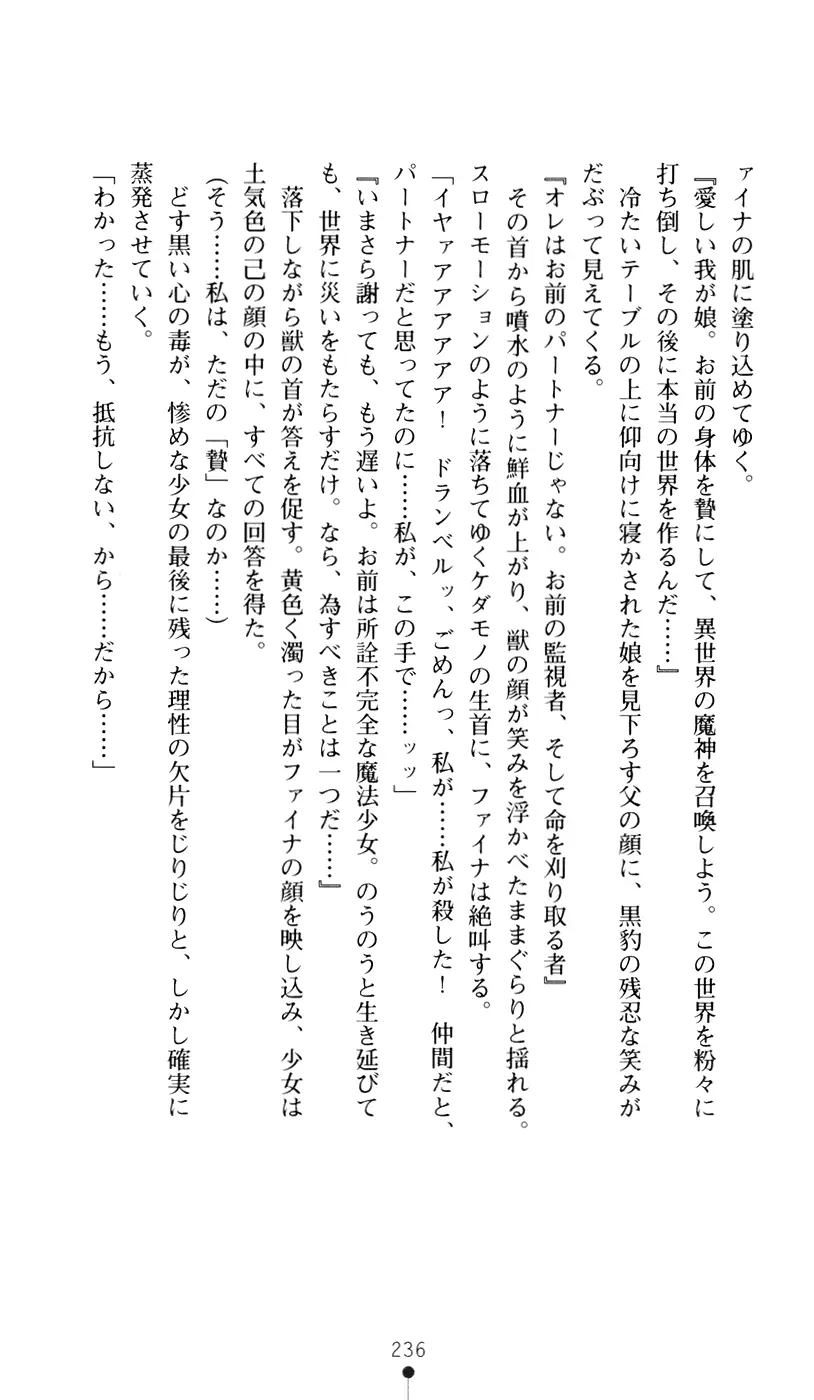 ァイナの肌に塗り込めてゆく。
『愛しい我が娘。お前の身体を贄にして、異世界の魔神を召喚しよう。この世界を粉々に
打ち倒し、その後に本当の世界を作るんだ……』
　冷たいテーブルの上に仰向けに寝かされた娘を見下ろす父の顔に、黒豹の残忍な笑みが
だぶって見えてくる。
『オレはお前のパートナーじゃない。お前の監視者、そして命を刈り取る者』
　その首から噴水のように鮮血が上がり、獣の顔が笑みを浮かべたままぐらりと揺れる。
スローモーションのように落ちてゆくケダモノの生首に、ファイナは絶叫する。
「イヤァアアアアアア！　ドランベルッ、ごめんっ、私が……私が殺した！　仲間だと、
パートナーだと思ってたのに……私が、この手で……ッッ」
『いまさら謝っても、もう遅いよ。お前は所詮不完全な魔法少女。のうのうと生き延びて
も、世界に災いをもたらすだけ。なら、為すべきことは一つだ……』
　落下しながら獣の首が答えを促す。黄色く濁った目がファイナの顔を映し込み、少女は
土気色の己の顔の中に、すべての回答を得た。
（そう……私は、ただの「贄」なのか……）
　どす黒い心の毒が、惨めな少女の最後に残った理性の欠片をじりじりと、しかし確実に
蒸発させていく。
「わかった……もう、抵抗しない、から……だから……」
236